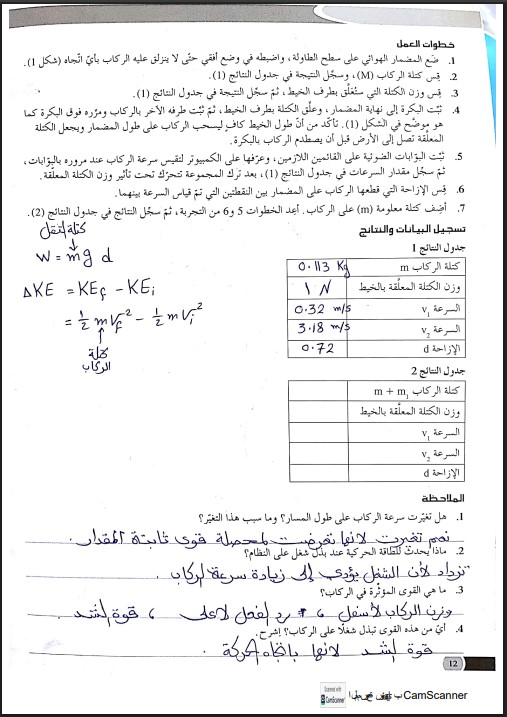 خطوات العمل
1. ضَع المضمار الهوائي على سطح الطاولة، واضبطه في وضع أفقي حتّى لا ينزلق عليه الركاب بأيّ اتّجاه (شكل 1).
2. قِس كتلة الركاب (M)، وسجِّل النتيجة في جدول النتائج (1).
3. قِس وزن الكتلة التي ستُعلَّق بطرف الخيط، ثمّ سجِّل النتيجة في جدول النتائج (1).
4. ثبّت البكرة إلى نهاية المضمار، وعلِّق الكتلة بطرف الخيط، ثمّ ثبّت طرفه الآخر بالركاب ومرِّره فوق البكرة كما
هو موضّح في الشكل (1). تأكّد من أنّ طول الخيط كافٍ ليسحب الركاب على طول المضمار ويجعل الكتلة
المعلّقة تصل إلى الأرض قبل أن يصطدم الركاب بالبكرة.
5. ثبّت البوّابات الضوئية على القائمين اللازمين، وعرّفها على الكمبيوتر لتقيس سرعة الركاب عند مروره بالبوّابات،
ثمّ سجِّل مقدار السرعات في جدول النتائج (1)، بعد ترك المجموعة تتحرّك تحت تأثير وزن الكتلة المعلّقة.
6. قِس الإزاحة التي قطعها الركاب على المضمار بين النقطتين التي تمّ قياس السرعة بينهما.
7. أضِف كتلة معلومة (m) على الركاب. أعِد الخطوات 5 و6 من التجربة، ثمّ سجِّل النتائج في جدول النتائج (2).
تسجيل البيانات والنتائج
جدول النتائج 1
كتلة الركاب m 0.113 Kg
وزن الكتلة المعلّقة بالخيط 1 N
السرعة v1 0.32 m/s
السرعة v2 3.18 m/s
الإزاحة d 0.72
كتلة الثقل
W = m g d
ΔKE = KEf - KEi
= 1/2 m Vf² - 1/2 m Vi²
كتلة
الركاب
جدول النتائج 2
كتلة الركاب m + m1
وزن الكتلة المعلّقة بالخيط
السرعة v1
السرعة v2
الإزاحة d
الملاحظة
1. هل تغيّرت سرعة الركاب على طول المسار؟ وما سبب هذا التغيّر؟
نعم تغيرت لانها تعرضت لمحصلة قوى ثابتة المقدار.
2. ماذا يحدث للطاقة الحركية عند بذل شغل على النظام؟
تزداد لأن الشغل يؤدي إلى زيادة سرعة الركاب.
3. ما هي القوى المؤثّرة في الركاب؟
وزن الركاب لأسفل ، رد الفعل لأعلى ، قوة الشد
4. أيّ من هذه القوى تبذل شغلًا على الركاب؟ إشرح.
قوة الشد لانها باتجاه الحركة.
12
Scanned with
CamScanner
CamScanner